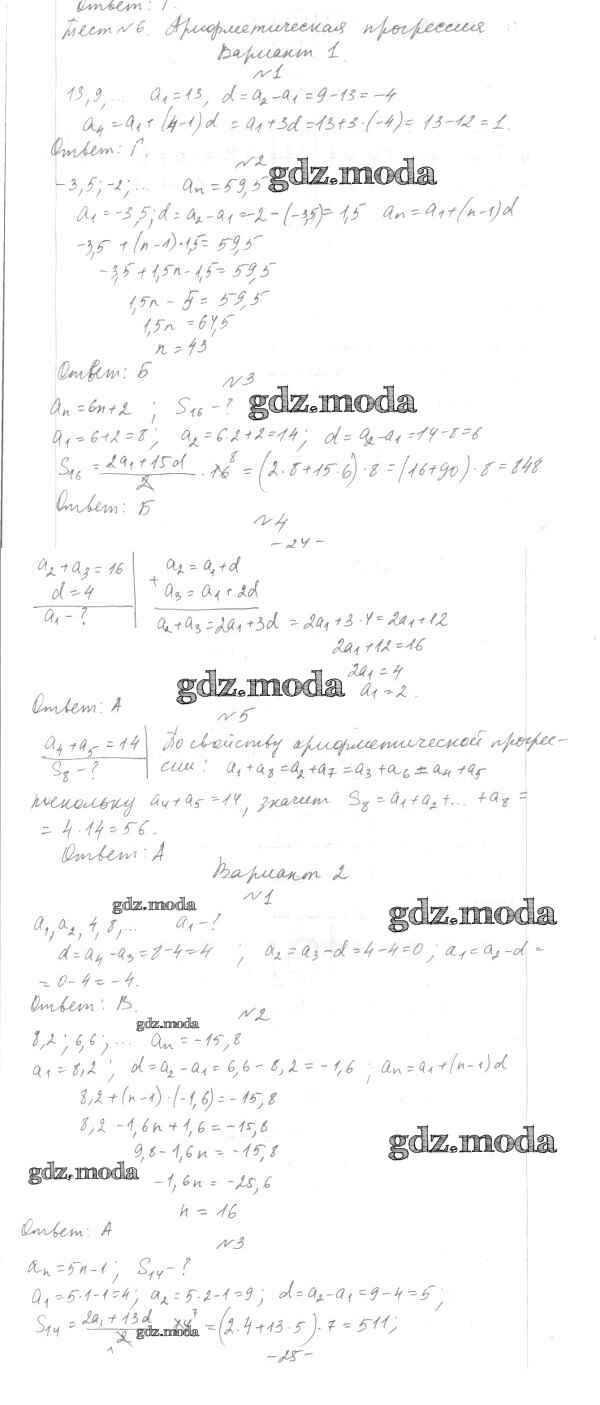 Ответ: Г.
Тест №6. Арифметическая прогрессия
Вариант 1.
№1
13, 9, ... a₁=13, d=a₂-a₁=9-13=-4
a₄=a₁+(4-1)d=a₁+3d=13+3·(-4)=13-12=1.
Ответ: Г.
№2
gdz.moda
-3,5; -2; ... aₙ=59,5
a₁=-3,5; d=a₂-a₁=-2-(-3,5)=1,5 aₙ=a₁+(n-1)d
-3,5+(n-1)·1,5=59,5
-3,5+1,5n-1,5=59,5
1,5n-5=59,5
1,5n=64,5
n=43
Ответ: Б
№3
gdz.moda
aₙ=6n+2; S₁₆-?
a₁=6+2=8; a₂=6·2+2=14; d=a₂-a₁=14-8=6
S₁₆=(2a₁+15d)/2·16 8=(2·8+15·6)·8=(16+90)·8=848
Ответ: Б
№4
-24-
a₂+a₃=16 a₂=a₁+d
d=4 + a₃=a₁+2d
a₁-? a₂+a₃=2a₁+3d=2a₁+3·4=2a₁+12
2a₁+12=16
2a₁=4
gdz.moda a₁=2.
Ответ: А
№5
a₄+a₅=14 По свойству арифметической прогрес-
S₈-? сии: a₁+a₈=a₂+a₇=a₃+a₆=a₄+a₅
поскольку a₄+a₅=14, значит S₈=a₁+a₂+...+a₈=
=4·14=56.
Ответ: А
Вариант 2
№1
gdz.moda gdz.moda
a₁, a₂, 4, 8, ... a₁-?
d=a₄-a₃=8-4=4; a₂=a₃-d=4-4=0; a₁=a₂-d=
=0-4=-4.
Ответ: В.
№2
gdz.moda
8,2; 6,6; ... aₙ=-15,8
a₁=8,2; d=a₂-a₁=6,6-8,2=-1,6; aₙ=a₁+(n-1)d
8,2+(n-1)·(-1,6)=-15,8
8,2-1,6n+1,6=-15,8
gdz.moda
9,8-1,6n=-15,8
gdz.moda
-1,6n=-25,6
n=16
Ответ: А
№3
aₙ=5n-1; S₁₄-?
a₁=5·1-1=4; a₂=5·2-1=9; d=a₂-a₁=9-4=5;
S₁₄=(2a₁+13d)/2·14 7=(2·4+13·5)·7=511;
gdz.moda
-25-